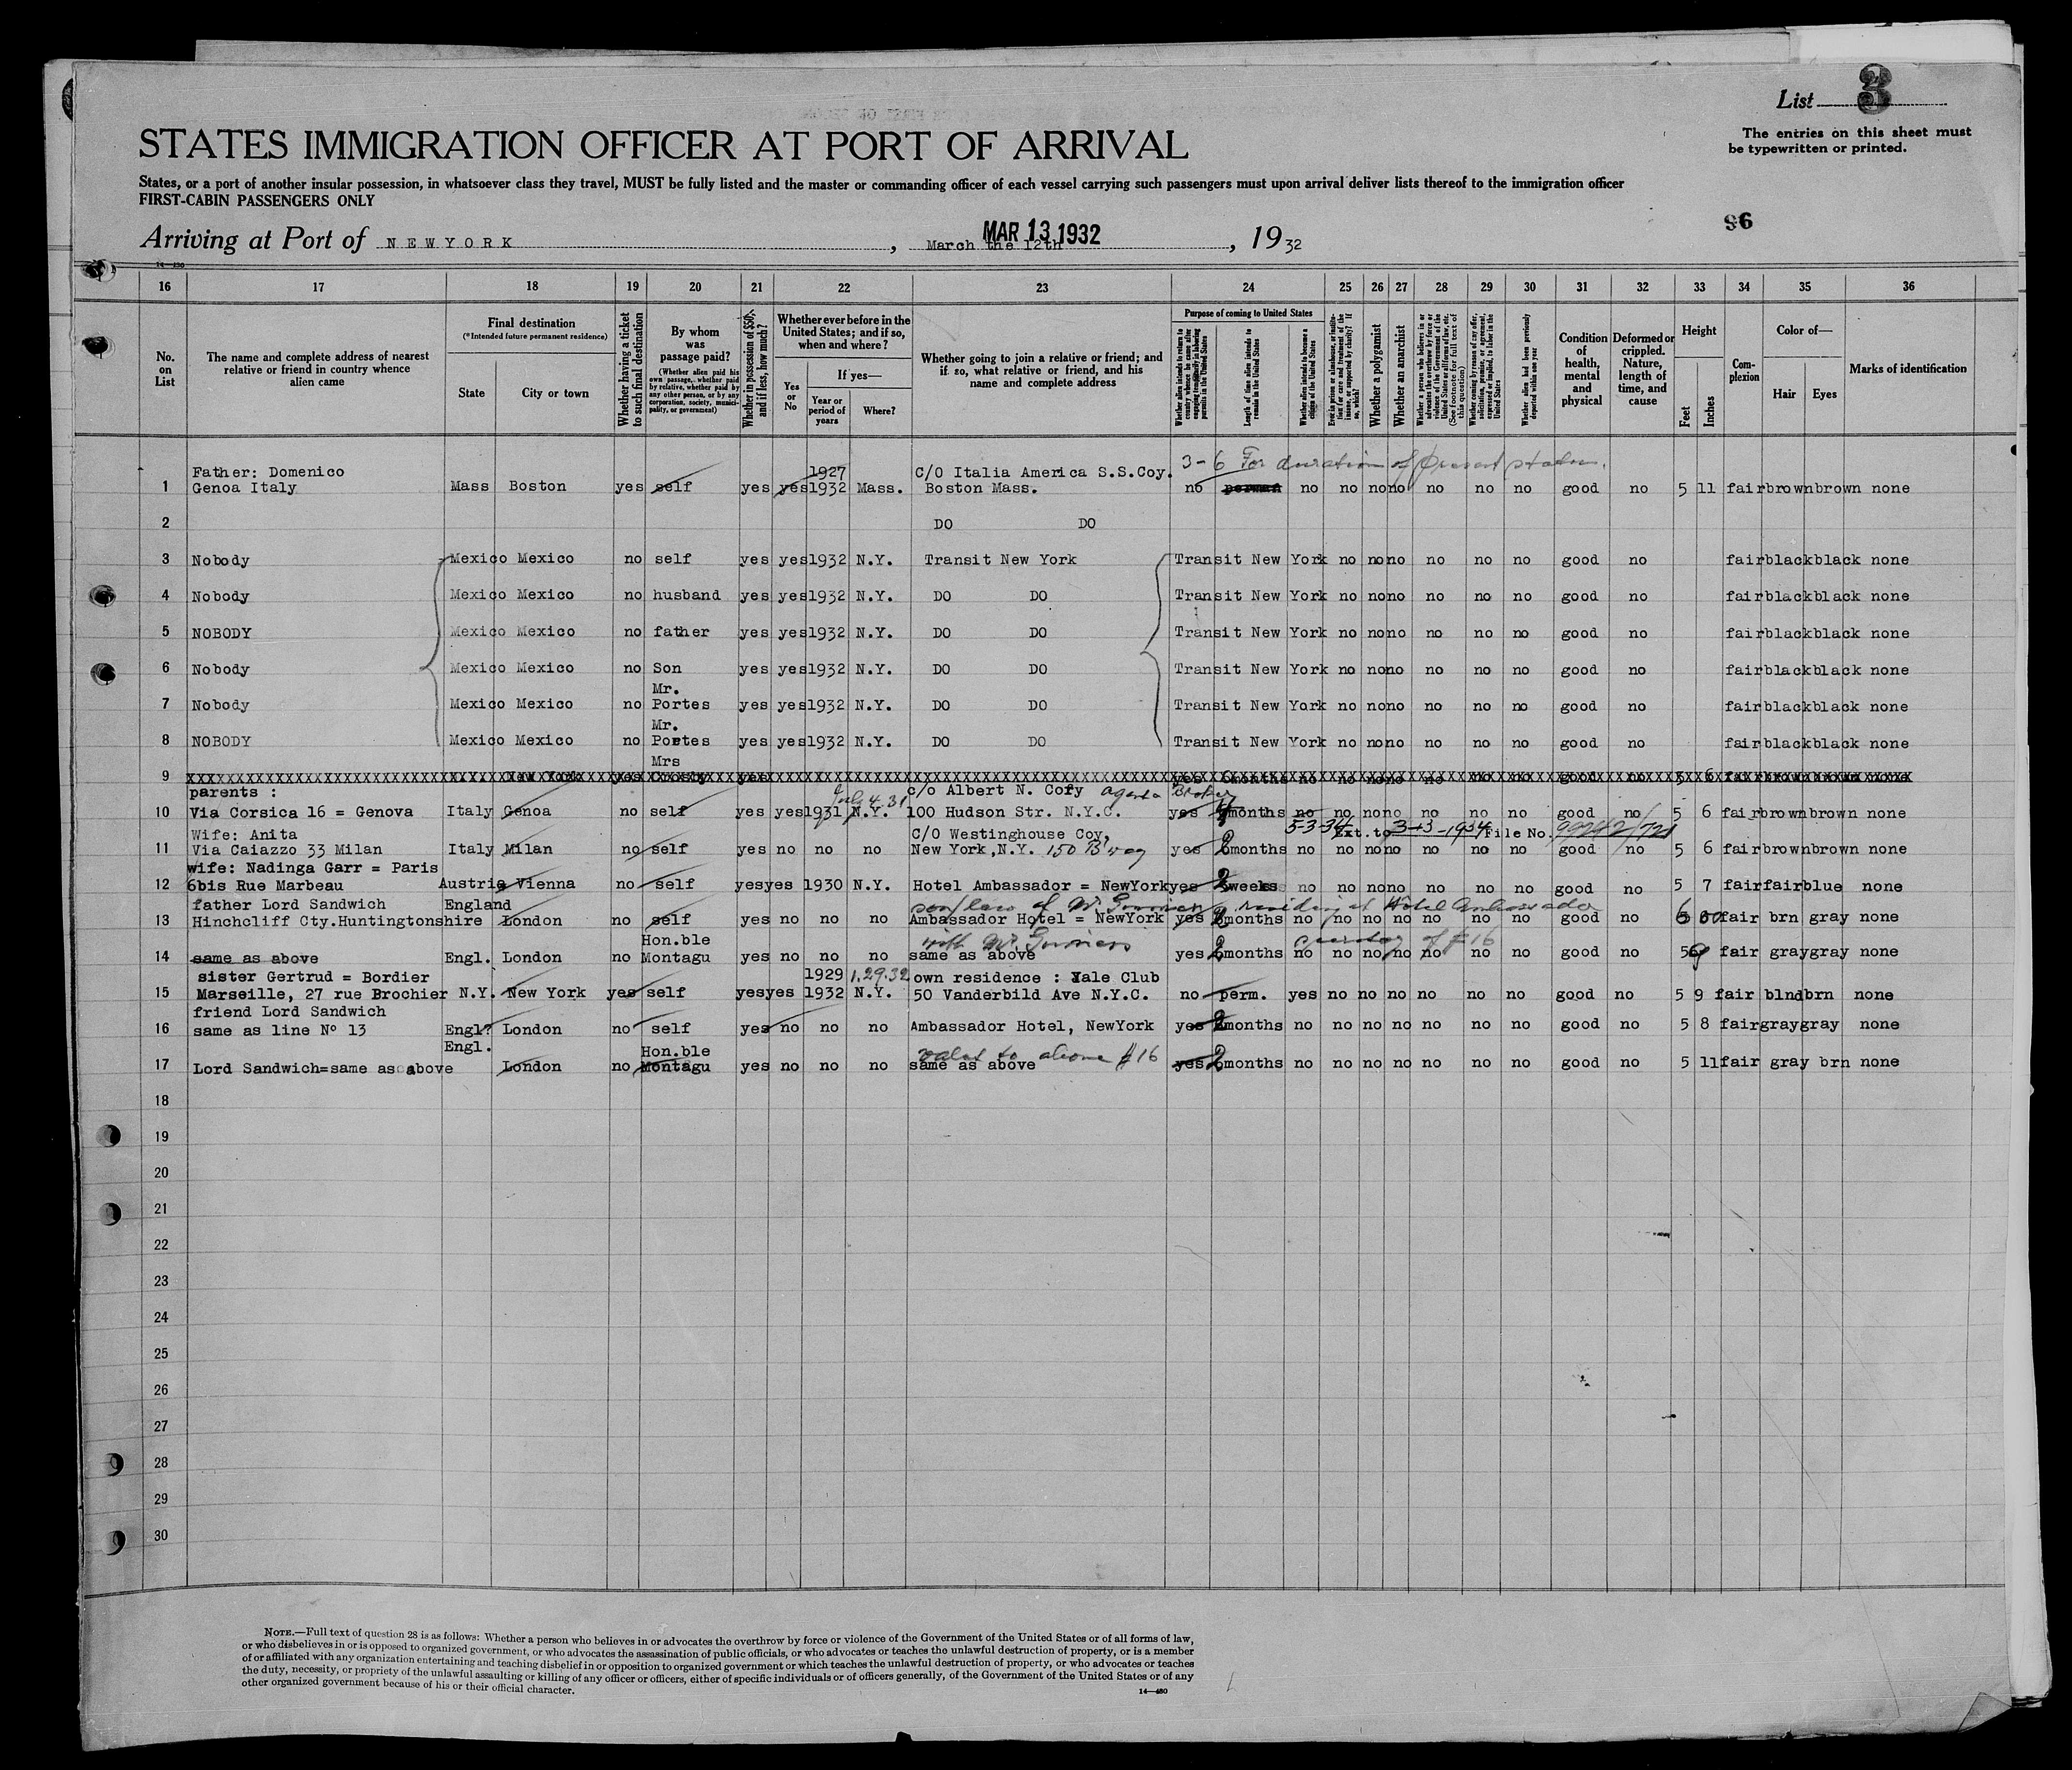 List 3
The entries on this sheet must
be typewritten or printed.
STATES IMMIGRATION OFFICER AT PORT OF ARRIVAL
States, or a port of another insular possession, in whatsoever class they travel, MUST be fully listed and the master or commanding officer of each vessel carrying such passengers must upon arrival deliver lists thereof to the immigration officer
FIRST-CABIN PASSENGERS ONLY
96
Arriving at Port of NEWYORK, March the 12th MAR 13 1932, 1932
14—430
16 17 18 19 20 21 22 23 24 25 26 27 28 29 30 31 32 33 34 35 36
No. on List
The name and complete address of nearest relative or friend in country whence alien came
Final destination
(*Intended future permanent residence)
State City or town
Whether having a ticket to such final destination
By whom was passage paid?
(Whether alien paid his own passage, whether paid by relative, whether paid by any other person, or by any corporation, society, municipality, or government)
Whether in possession of $50, and if less, how much?
Whether ever before in the United States; and if so, when and where?
Yes or No
If yes—
Year or period of years
Where?
Whether going to join a relative or friend; and if so, what relative or friend, and his name and complete address
Purpose of coming to United States
Length of time alien intends to remain in the United States
Whether alien intends to become a citizen of the United States
Whether a polygamist
Whether an anarchist
Whether alien had been previously deported within one year
Condition of health, mental and physical
Deformed or crippled. Nature, length of time, and cause
Height
Feet Inches
Complexion
Color of—
Hair Eyes
Marks of identification
Father: Domenico 1927 C/O Italia America S.S.Coy. 3-6 For duration of present status.
1 Genoa Italy Mass Boston yes self yes yes 1932 Mass. Boston Mass. no no no no no no no no good no 5 11 fair brown brown none
2 DO DO
3 Nobody Mexico Mexico no self yes yes 1932 N.Y. Transit New York Transit New York no no no no no no good no fair black black none
4 Nobody Mexico Mexico no husband yes yes 1932 N.Y. DO DO Transit New York no no no no no no good no fair black black none
5 NOBODY Mexico Mexico no father yes yes 1932 N.Y. DO DO Transit New York no no no no no no good no fair black black none
6 Nobody Mexico Mexico no Son yes yes 1932 N.Y. DO DO Transit New York no no no no no no good no fair black black none
Mr.
7 Nobody Mexico Mexico no Portes yes yes 1932 N.Y. DO DO Transit New York no no no no no no good no fair black black none
Mr.
8 NOBODY Mexico Mexico no Portes yes yes 1932 N.Y. DO DO Transit New York no no no no no no good no fair black black none
Mrs
9 N.Y. New York yes Crosby yes yes 6months no no no no no no no good no 5 6 fair brown brown none
parents : July 4.31 c/o Albert N. Cory
10 Via Corsica 16 = Genova Italy Genoa no self yes yes 1931 N.Y. 100 Hudson Str. N.Y.C. yes months no no no no no no no good no 5 6 fair brown brown none
Wife: Anita C/O Westinghouse Coy, 5-3-34 Ext. to 3-13-1934 File No. 99242/721
11 Via Caiazzo 33 Milan Italy Milan no self yes no no no New York,N.Y. 150 B'way yes 2 months no no no no no no no good no 5 6 fair brown brown none
wife: Nadinga Garr = Paris
12 6bis Rue Marbeau Austria Vienna no self yes yes 1930 N.Y. Hotel Ambassador = NewYork yes 2 weeks no no no no no no no good no 5 7 fair fair blue none
father Lord Sandwich England residing at Hotel Ambassador
13 Hinchcliff Cty.Huntingtonshire London no self yes no no no Ambassador Hotel = NewYork yes 2 months no no no no no no no good no 6 00 fair brn gray none
Hon.ble with Mr.
14 same as above Engl. London no Montagu yes no no no same as above yes 2 months no no no no no no no good no 5 9 fair gray gray none
sister Gertrud = Bordier 1929 1.29.32 own residence : Yale Club
15 Marseille, 27 rue Brochier N.Y. New York yes self yes yes 1932 N.Y. 50 Vanderbild Ave N.Y.C. no perm. yes no no no no no no good no 5 9 fair blnd brn none
friend Lord Sandwich
16 same as line Nº 13 Engl. London no self yes no no no Ambassador Hotel, NewYork yes 2 months no no no no no no no good no 5 8 fair gray gray none
Engl. Hon.ble valet to above #16
17 Lord Sandwich=same as above London no Montagu yes no no no same as above yes 2 months no no no no no no no good no 5 11 fair gray brn none
18
19
20
21
22
23
24
25
26
27
28
29
30
NOTE.—Full text of question 28 is as follows: Whether a person who believes in or advocates the overthrow by force or violence of the Government of the United States or of all forms of law,
or who disbelieves in or is opposed to organized government, or who advocates the assassination of public officials, or who advocates or teaches the unlawful destruction of property, or is a member
of or affiliated with any organization entertaining and teaching disbelief in or opposition to organized government or which teaches the unlawful destruction of property, or who advocates or teaches
the duty, necessity, or propriety of the unlawful assaulting or killing of any officer or officers, either of specific individuals or of officers generally, of the Government of the United States or of any
other organized government because of his or their official character.
14—430